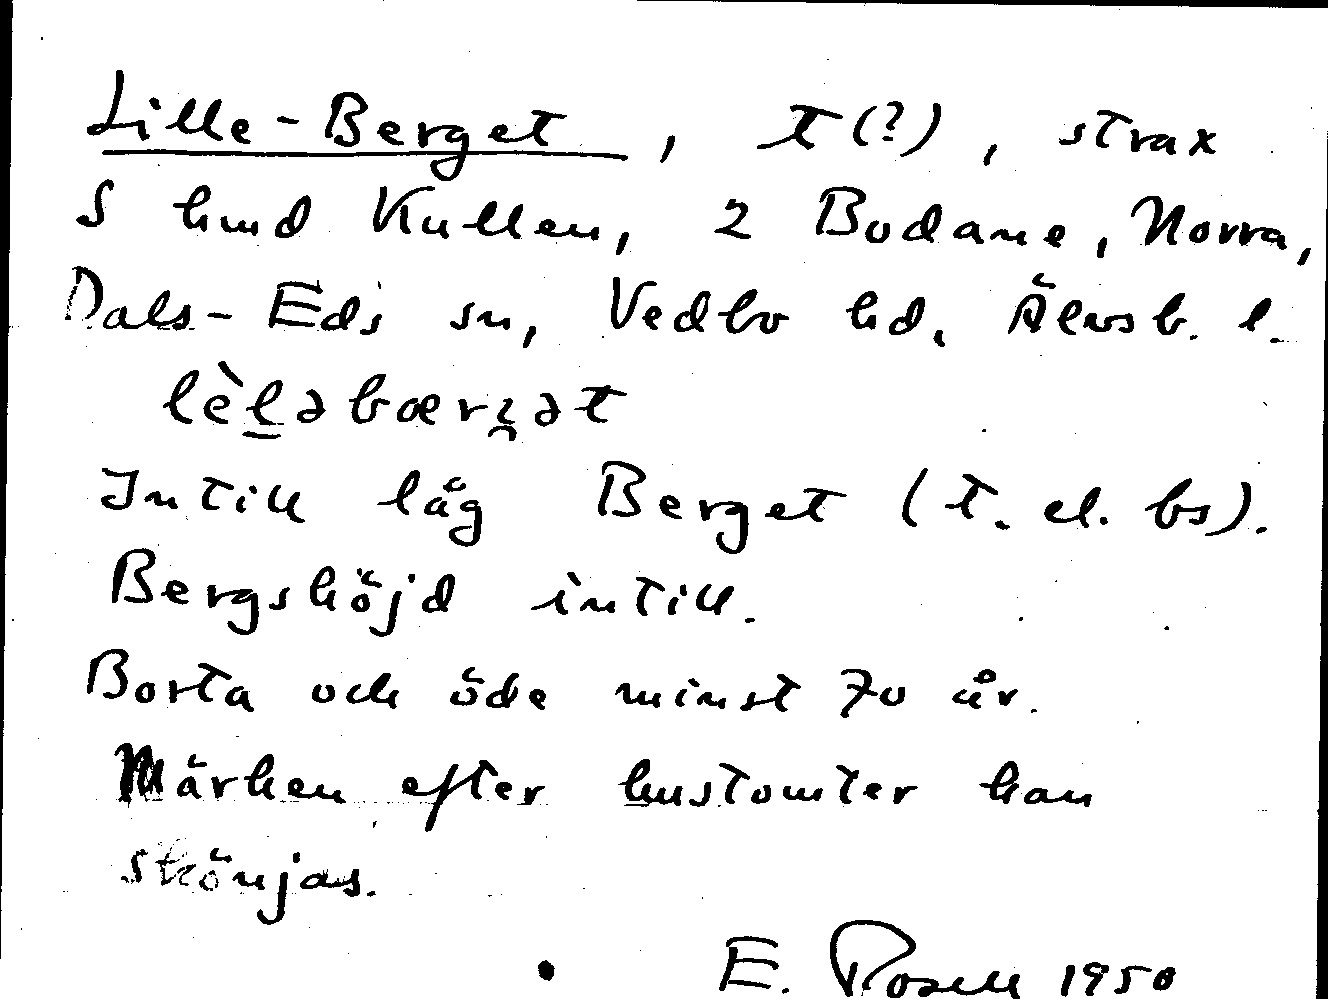 Lille-Berget, t(?), strax
S hmd Kullen, 2 Bodane, Norra,
Dals-Eds sn, Vedbo hd, Älvsb. l.
lèlabærgat
Intill låg Berget (t. el. bs).
Bergshöjd intill.
Borta och öde minst 70 år.
Märken efter hustomter kan
skönjas.
E. Rosell 1950